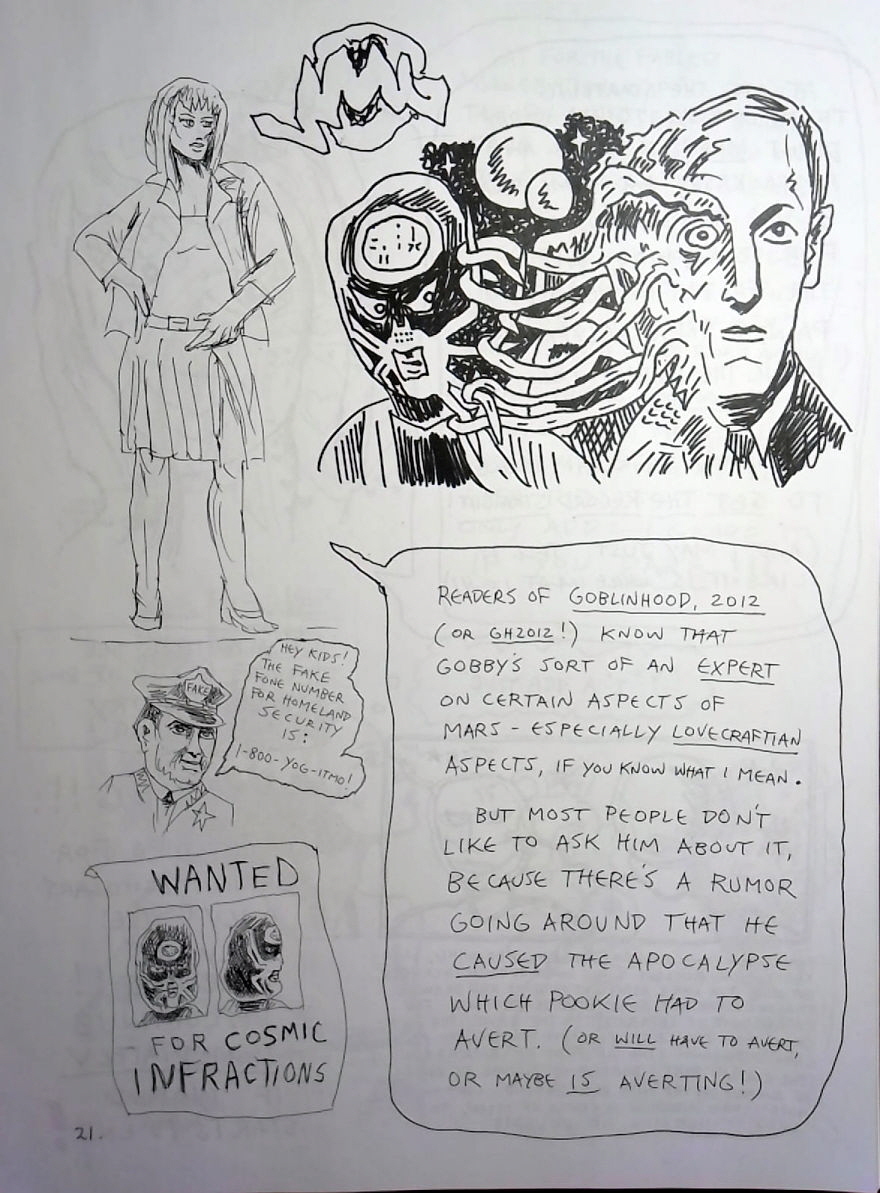 READERS OF GOBLINHOOD, 2012
(OR GH2012!) KNOW THAT
GOBBY'S SORT OF AN EXPERT
ON CERTAIN ASPECTS OF
MARS - ESPECIALLY LOVECRAFTIAN
ASPECTS, IF YOU KNOW WHAT I MEAN.
BUT MOST PEOPLE DON'T
LIKE TO ASK HIM ABOUT IT,
BECAUSE THERE'S A RUMOR
GOING AROUND THAT HE
CAUSED THE APOCALYPSE
WHICH POOKIE HAD TO
AVERT. (OR WILL HAVE TO AVERT,
OR MAYBE IS AVERTING!)
HEY KIDS!
THE FAKE
FONE NUMBER
FOR HOMELAND
SECURITY
IS:
1-800-YOG-ITMO!
FAKE
WANTED
FOR COSMIC
INFRACTIONS
21.